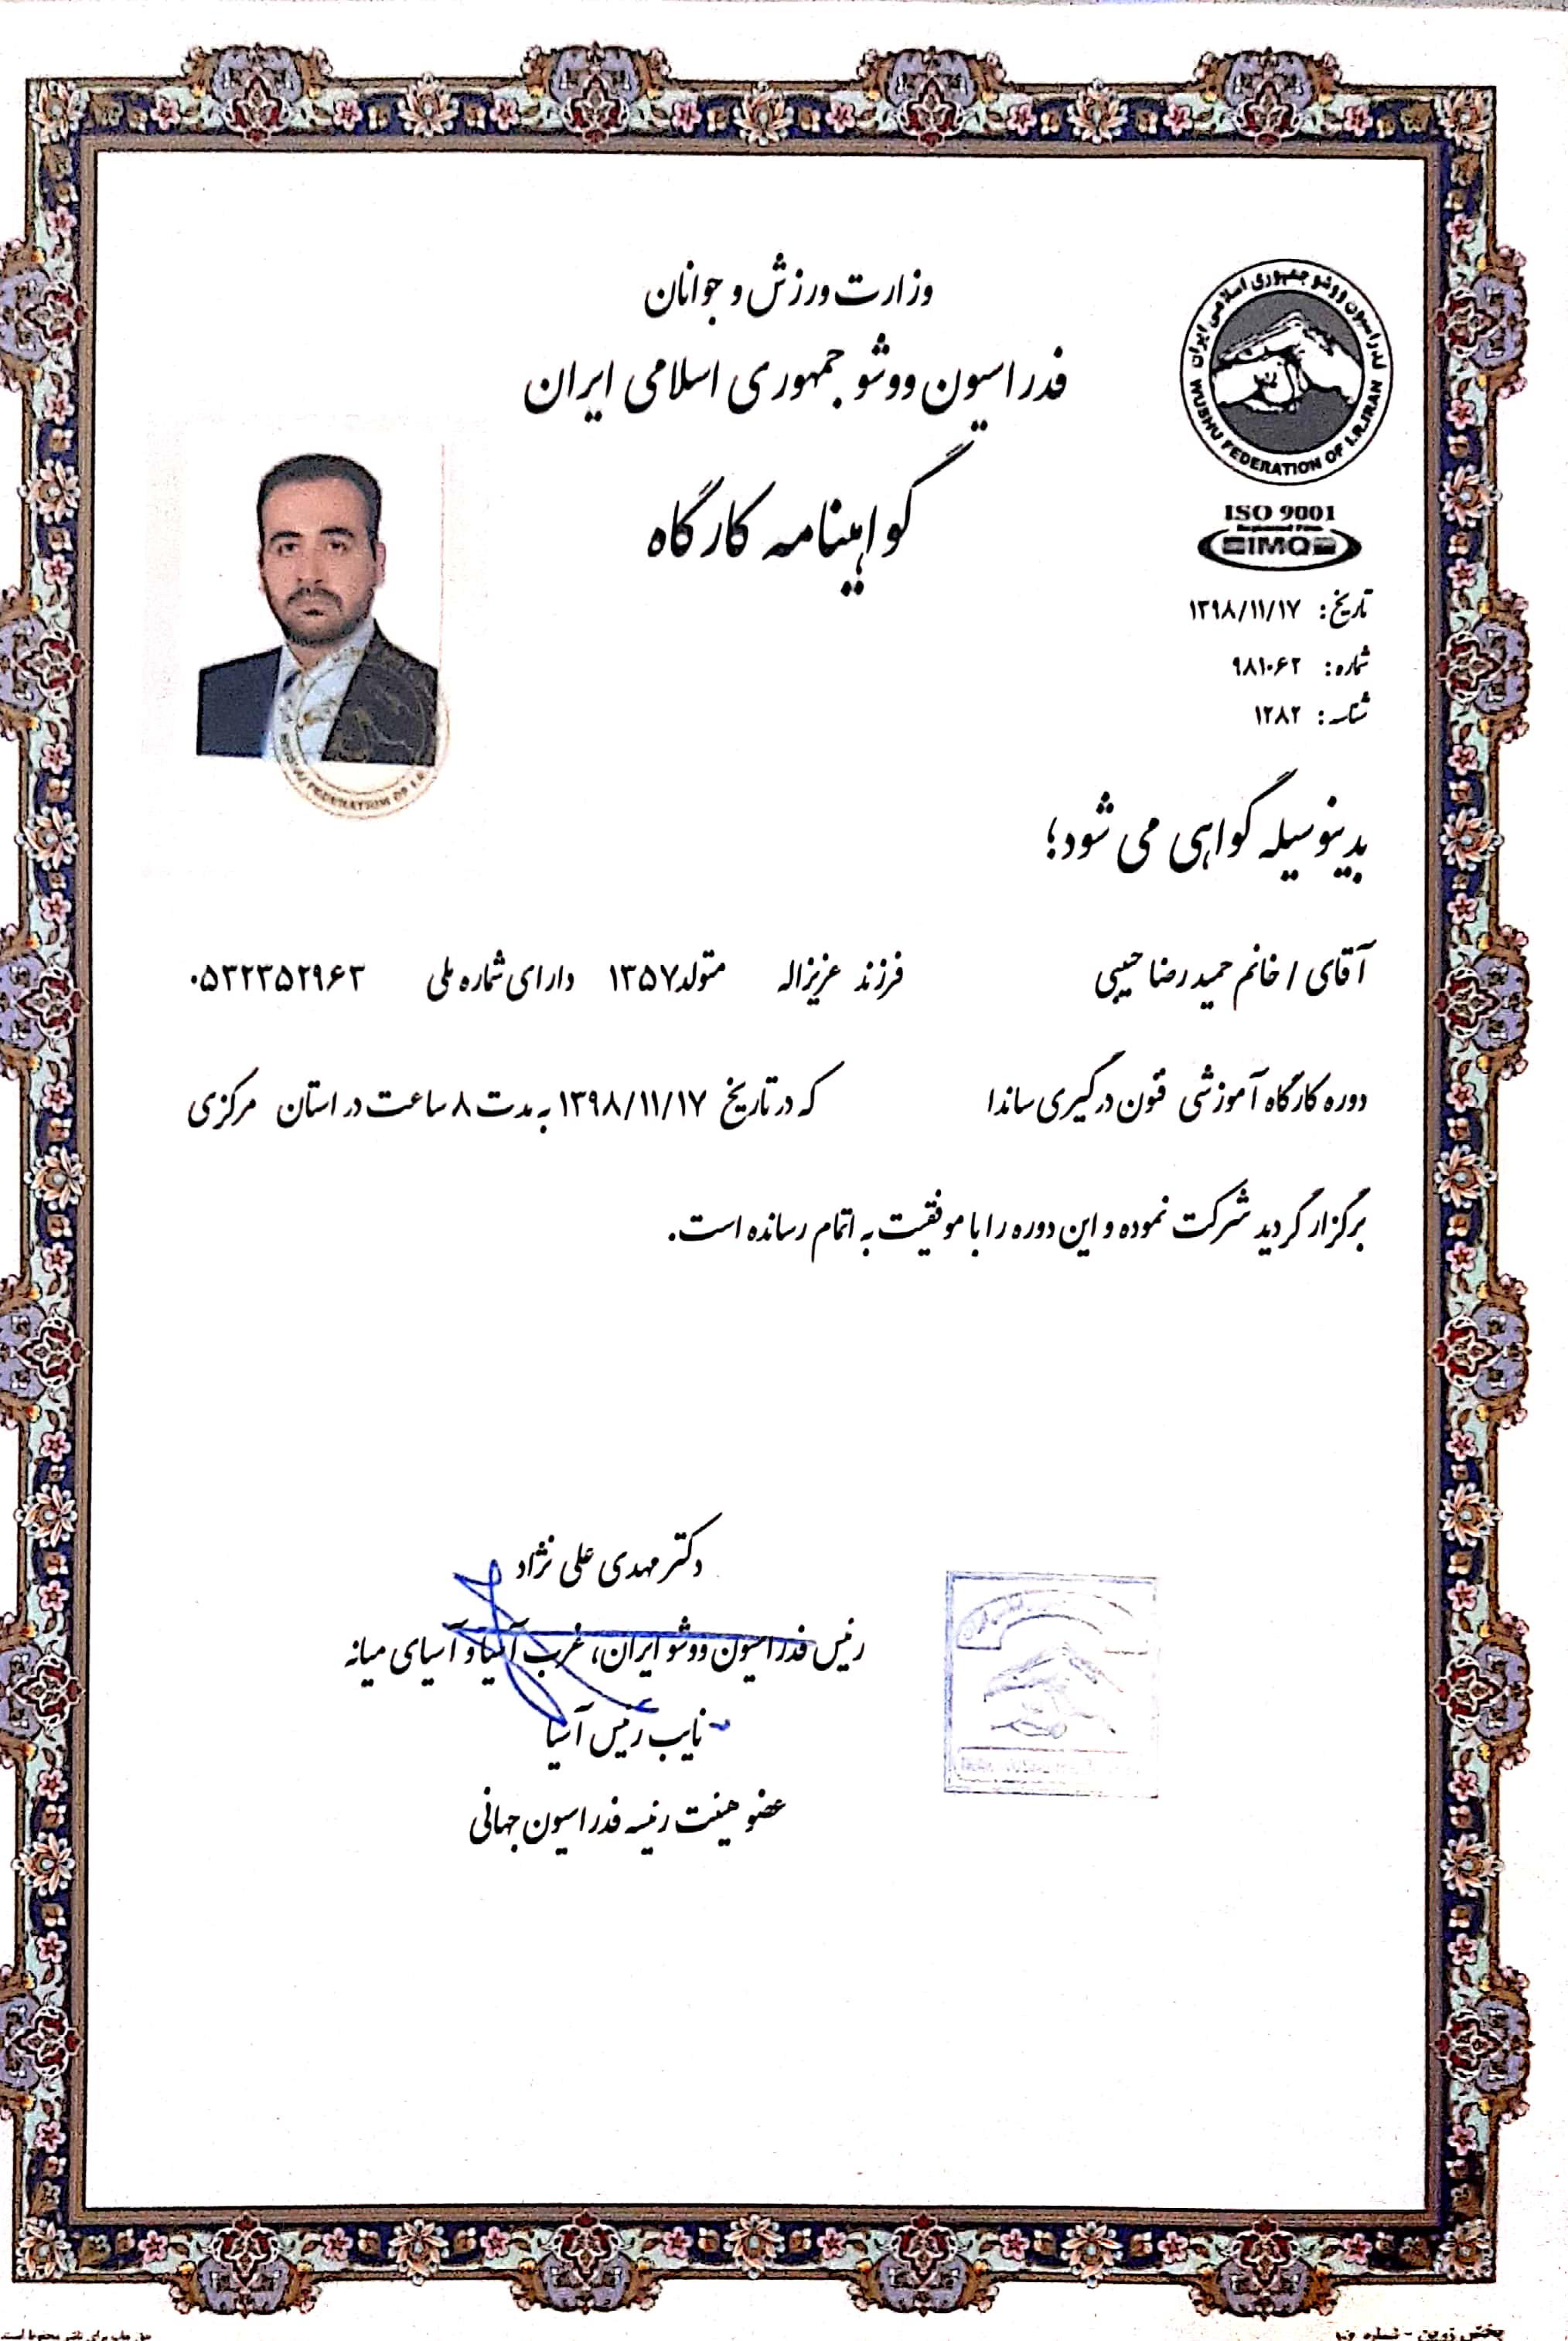 وزارت ورزش و جوانان
فدراسیون ووشو جمهوری اسلامی ایران
گواهینامه کارگاه
فدراسیون ووشو جمهوری اسلامی ایران
WUSHU FEDERATION OF I.R.IRAN
ISO 9001
IMQ
تاریخ: ۱۳۹۸/۱۱/۱۷
شماره: ۹۸۱۰۶۲
شناسه: ۱۲۸۲
WUSHU FEDERATION OF I.R.
بدینوسیله گواهی می شود؛
آقای / خانم حمیدرضا حبیبی فرزند عزیزاله متولد ۱۳۵۷ دارای شماره ملی ۰۵۳۲۳۵۲۹۶۳
دوره کارگاه آموزشی فنون درگیری ساندا که در تاریخ ۱۳۹۸/۱۱/۱۷ به مدت ۸ ساعت در استان مرکزی
برگزار گردید شرکت نموده و این دوره را با موفقیت به اتمام رسانده است.
دکتر مهدی علی نژاد
رئیس فدراسیون ووشو ایران، غرب آسیا و آسیای میانه
نایب رئیس آسیا
عضو هیئت رئیسه فدراسیون جهانی